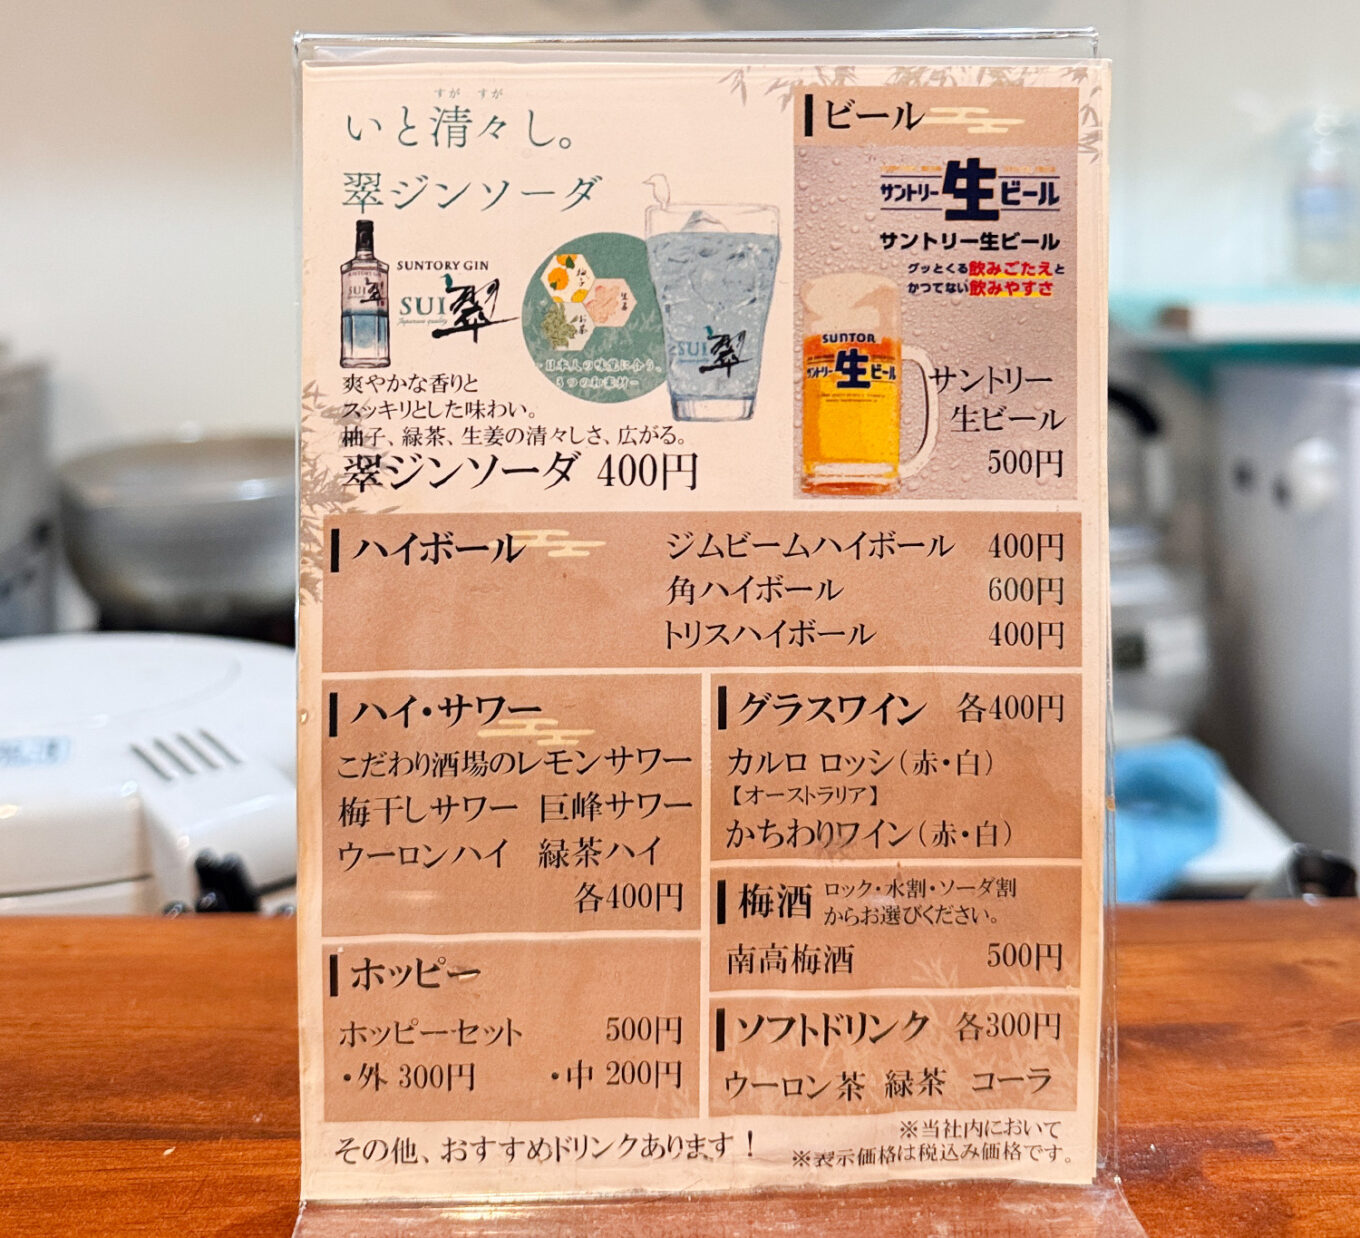 すが すが
いと清々し。
翠ジンソーダ
SUNTORY GIN
SUI 翠
Japanese quality
柚子
生姜
お茶
日本人の味覚に合う、
3つの和素材
SUI 翠
爽やかな香りと
スッキリとした味わい。
柚子、緑茶、生姜の清々しさ、広がる。
翠ジンソーダ 400円
ビール
サントリー生ビール
サントリー生ビール
グッとくる飲みごたえと
かつてない飲みやすさ
SUNTOR
サントリー生ビール
サントリー
生ビール
500円
ハイボール
ジムビームハイボール 400円
角ハイボール 600円
トリスハイボール 400円
ハイ・サワー
こだわり酒場のレモンサワー
梅干しサワー 巨峰サワー
ウーロンハイ 緑茶ハイ
各400円
ホッピー
ホッピーセット 500円
・外 300円 ・中 200円
グラスワイン 各400円
カルロ ロッシ（赤・白）
【オーストラリア】
かちわりワイン（赤・白）
梅酒 ロック・水割・ソーダ割
からお選びください。
南高梅酒 500円
ソフトドリンク 各300円
ウーロン茶 緑茶 コーラ
その他、おすすめドリンクあります！
※当社内において
※表示価格は税込み価格です。